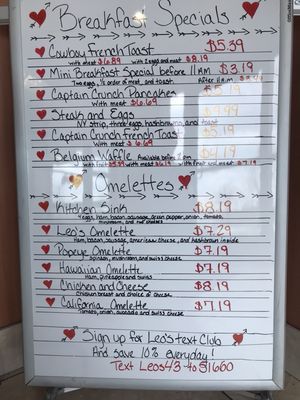 Breakfast Specials
Cowboy French Toast $5.39
with meat $6.89 with 2 eggs and meat $8.19
Mini Breakfast Special before 11 A.M. $3.19
Two eggs, ½ order of meat, and toast After 11 A.M.
Captain Crunch Pancakes $5.19
With meat $6.69
Steak and Eggs $9.99
NY strip, three eggs, hashbrowns, and toast
Captain Crunch French Toast $5.19
With meat $6.69
Belgium Waffle Available before 2 pm $4.19
with fruit with meat with fruit and meat $7.19
Omelettes
Kitchen Sink $8.19
eggs, ham, bacon, sausage, green pepper, onion, tomato,
mushroom,
Leo's Omelette $7.29
Ham, bacon, sausage, american cheese, and hashbrown inside
Popeye Omelette $7.19
Spinach, mushroom, and swiss cheese
Hawaiian Omelette $7.19
Ham, pineapple, and swiss
Chicken and Cheese $8.19
Chicken breast and choice of cheese
California Omelette $7.19
Tomato, onion, avocado, and swiss cheese
Sign up for Leo's text Club
And save 10% everyday!
Text Leos43 to 51660